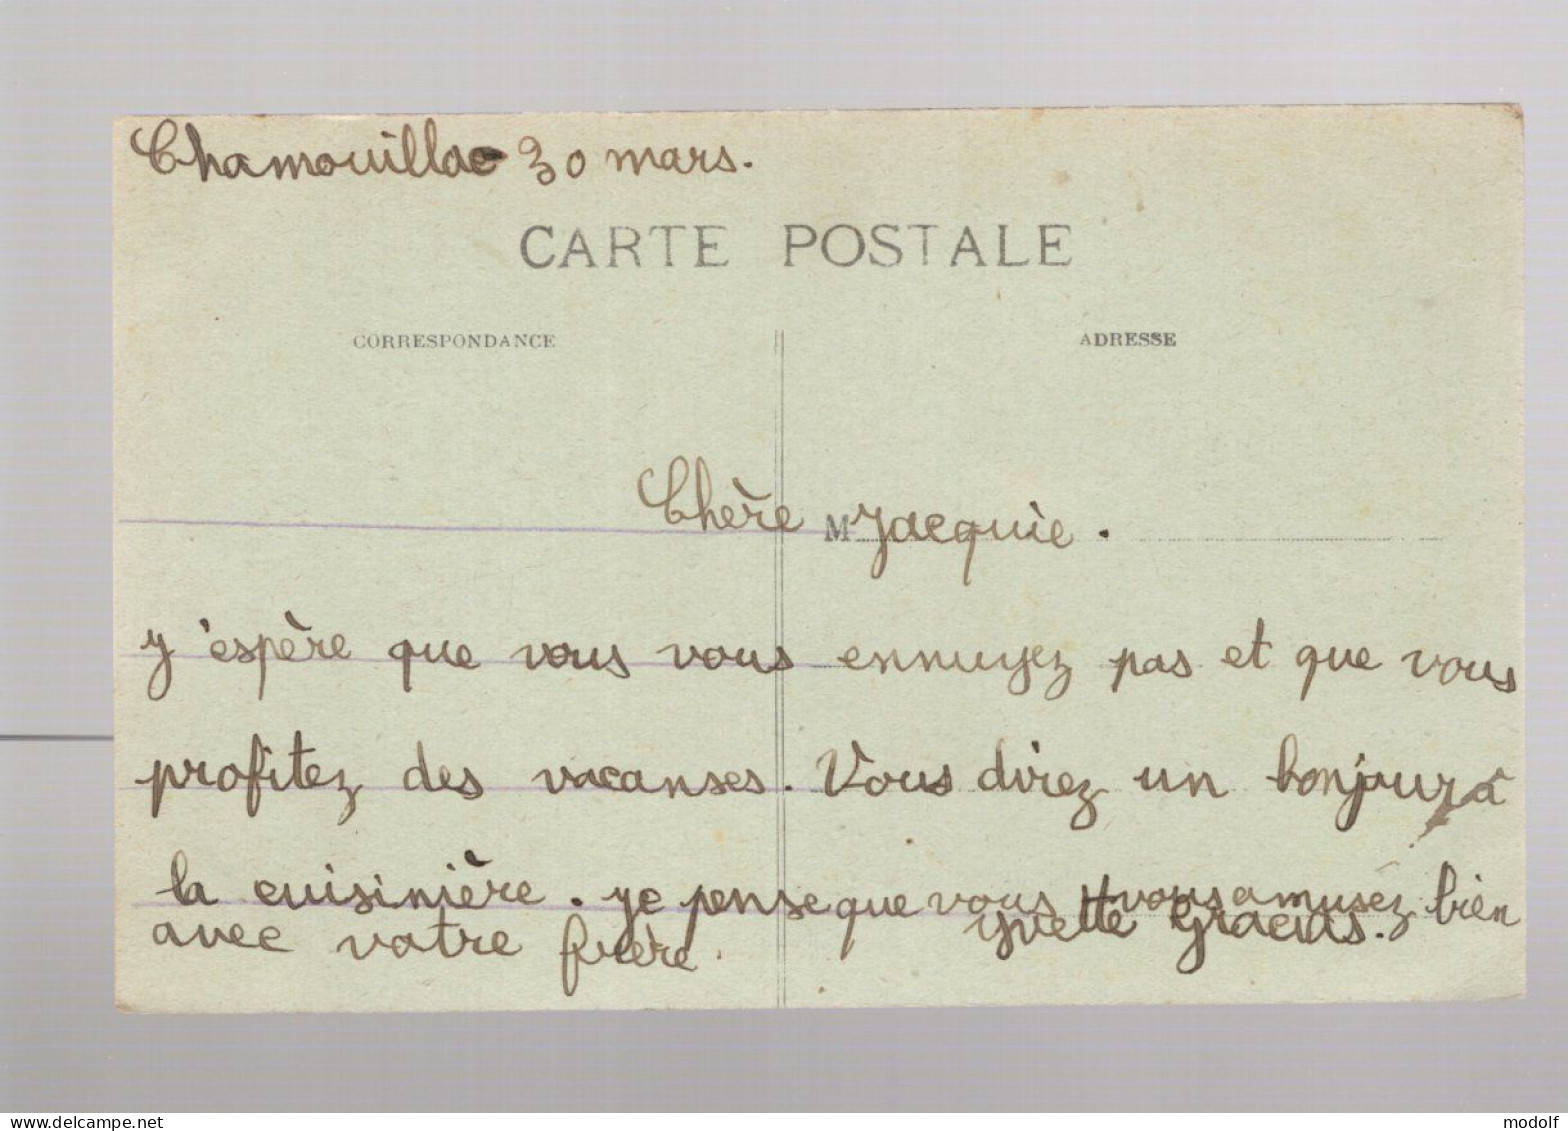 Chamouillac 30 mars.
CARTE POSTALE
CORRESPONDANCE
ADRESSE
Chère M Jacquie.
J'espère que vous vous ennuyez pas et que vous
profitez des vacanses. Vous direz un bonjour à
la cuisinière. Je pense que vous vous amusez bien
avec votre frère.
Yvette
www.delcampe.net
modolf